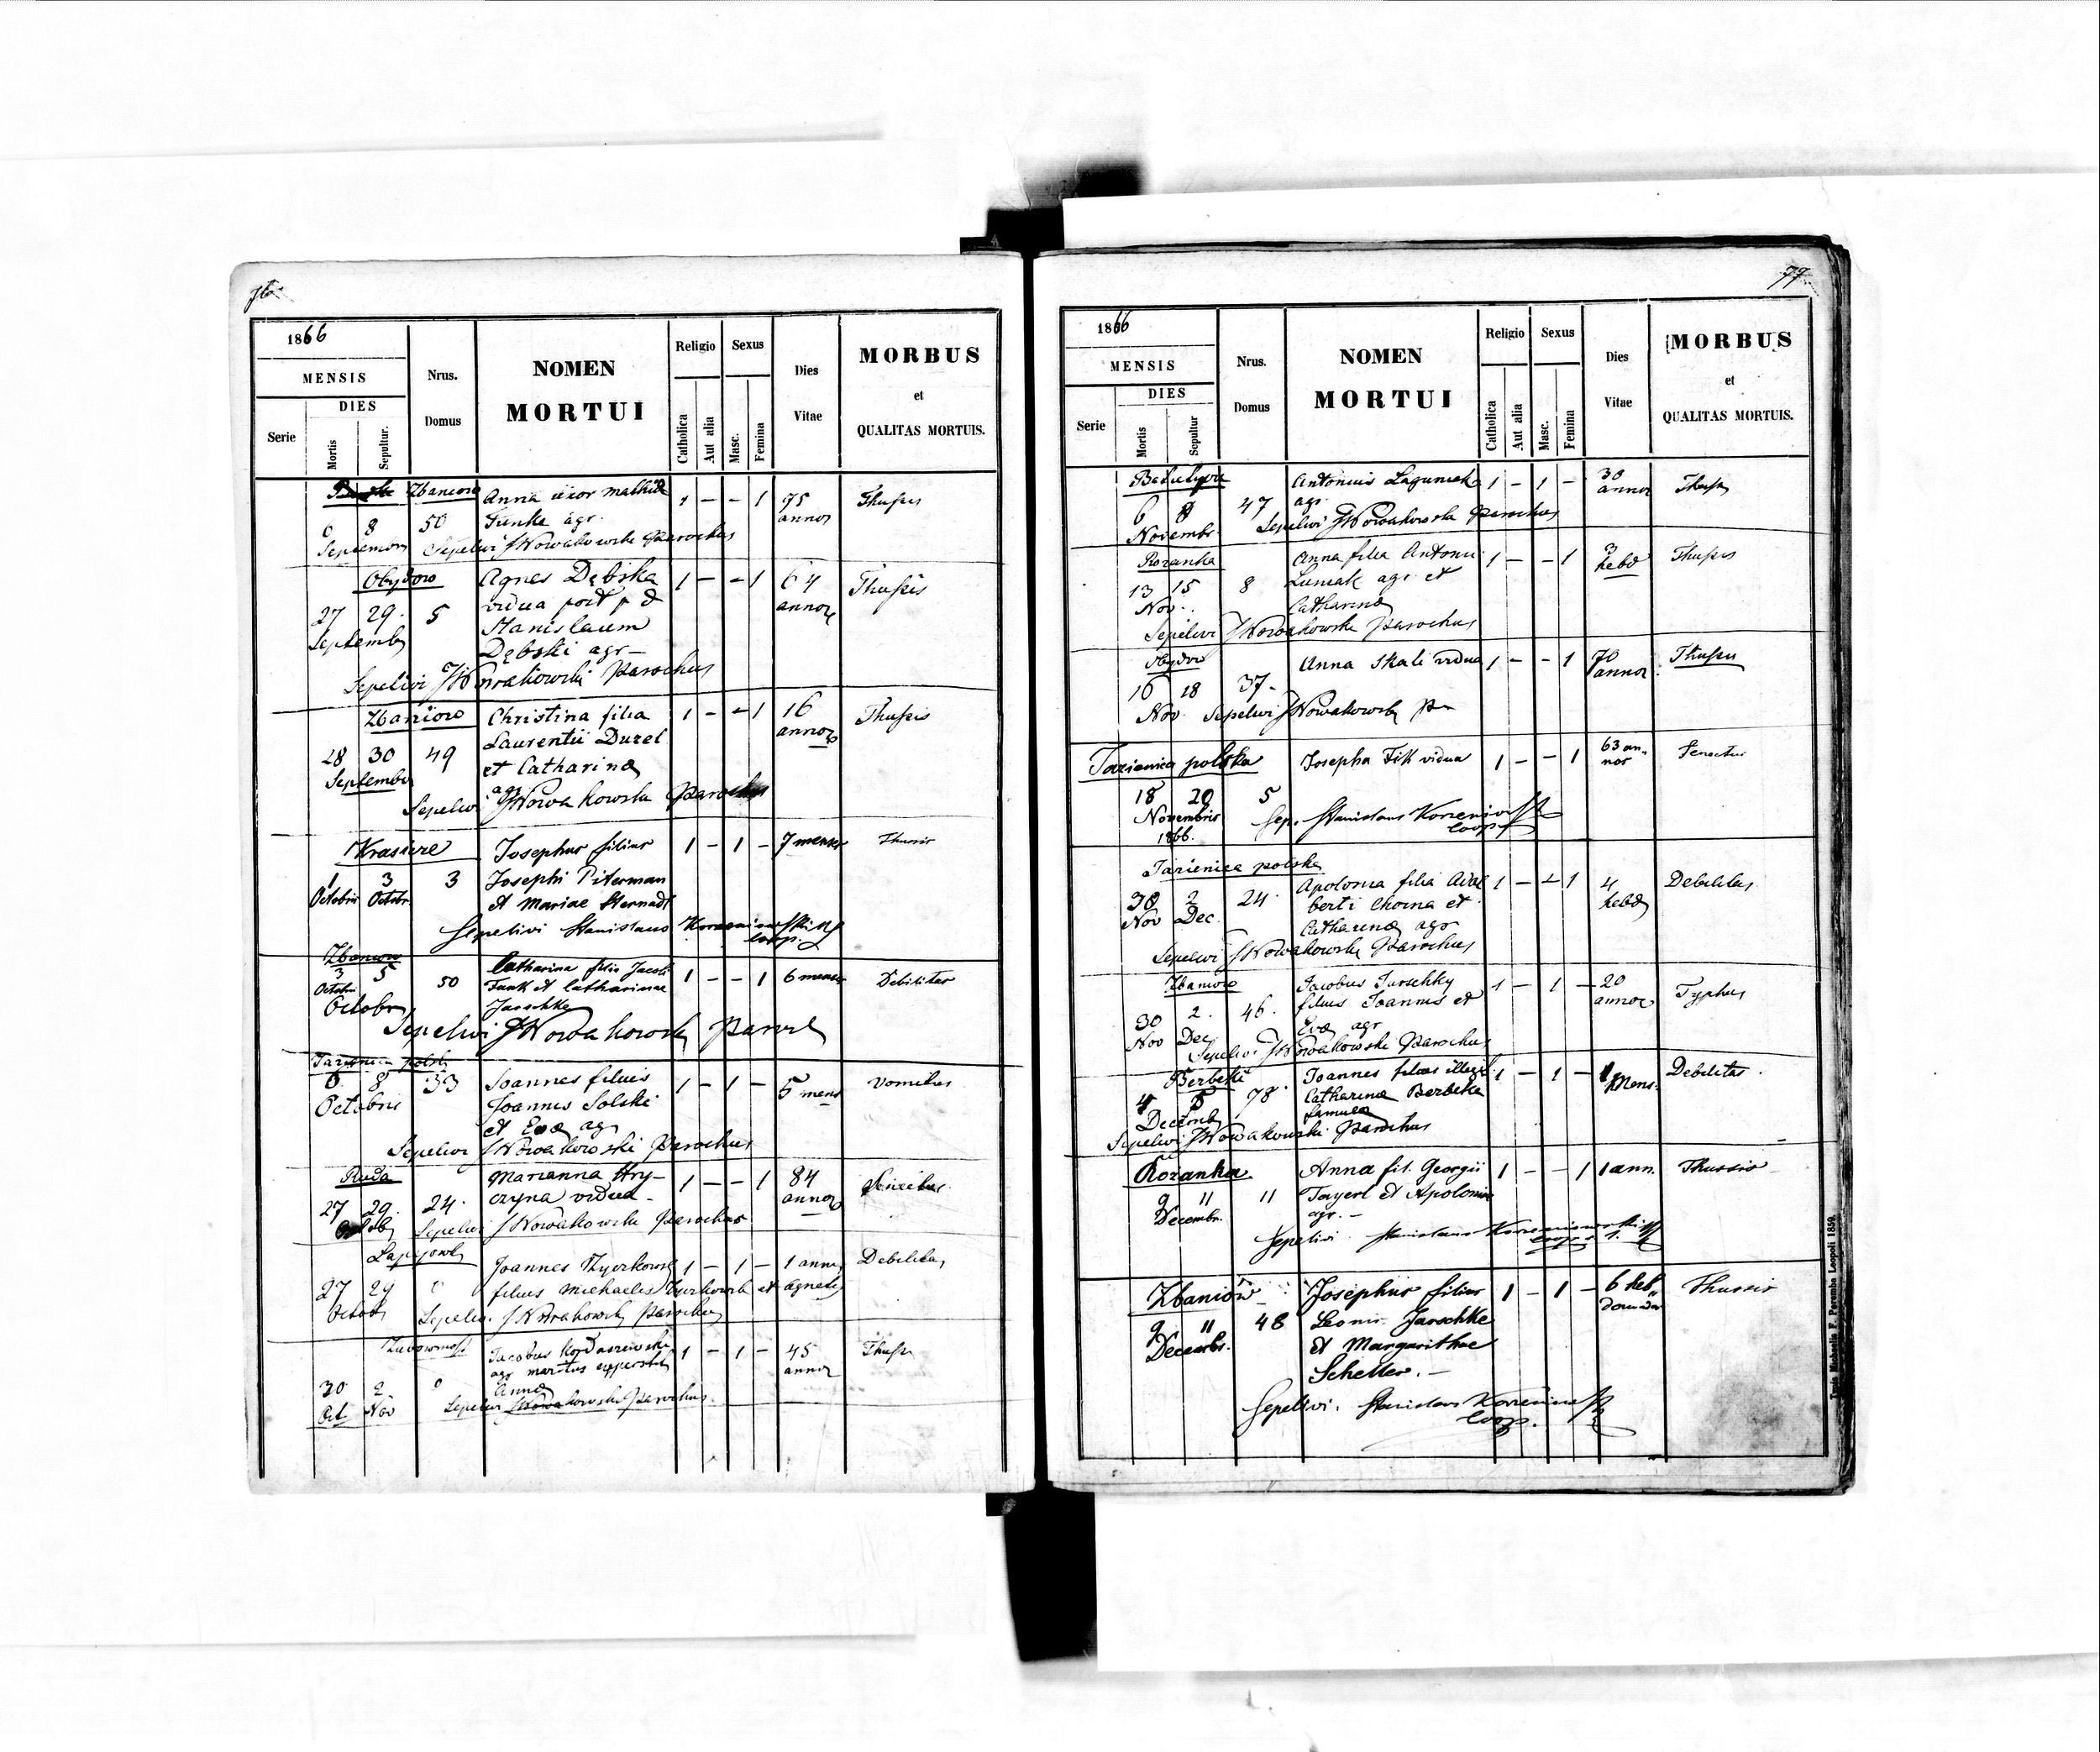 1866
MENSIS
DIES
Serie
Mortis
Sepultur.
Nrus.
Domus
NOMEN
MORTUI
Religio
Catholica
Aut alia
Sexus
Masc.
Femina
Dies
Vitae
MORBUS
et
QUALITAS MORTUIS.
Zbaniow Anna uxor Mathiæ 1 – – 1 75 Thussis
6 8 50 Funke agr. annor
Septembr Sepelivi J Nowakowski Parochus
Obydow Agnes Dębska 1 – – 1 64 Thussis
27 29 5 vidua post p d annor
Septembr Stanislaum
Dębski agr –
Sepelivi J Nowakowski Parochus
Zbaniow Christina filia 1 – – 1 16 Thussis
28 30 49 Laurentii Durel annor
Septembr et Catharinæ
agr
Sepelivi J Nowakowski Parochus
Josephus filius 1 – 1 – 7 mens Thussis
1 3 3 Josephi Piterman
Octobris Octobr. et Mariae Sternadt
Sepelivi Stanislaus Korzeniowski
Coop.
Zbaniow
3 5 50 Catharina filia Jacobi 1 – – 1 6 mens Debilitas
Octobr Funk et Catharinae
Octobr Jarschke
Sepelivi J Nowakowski Paroch
Tazienica polsk
6 8 33 Joannes filius 1 – 1 – 5 mens Vomitus
Octobris Joannis Solski
et Evæ agr
Sepelivi J Nowakowski Parochus
Ruda Marianna Hry– 1 – – 1 84
27 29 24 czyna vidua – annor
Sepelivi J Nowakowski Parochus
Joannes 1 – 1 – 1 anni Debilitas
27 29 0 filius Michaelis et Agnetis
Octobr Sepelivi J Nowakowski Parochus
Jacobus 1 – 1 – 45 Thussis
agr maritus annor
30 2 0 Annæ
Oct Nov Sepelivi J Nowakowski Parochus
77
1866
MENSIS
DIES
Serie
Mortis
Sepultur
Nrus.
Domus
NOMEN
MORTUI
Religio
Catholica
Aut alia
Sexus
Masc.
Femina
Dies
Vitae
MORBUS
et
QUALITAS MORTUIS.
Antonius 1 – 1 – 30 Thussis
6 8 47 agr. annor
Novembr. Sepelivi J Nowakowski Parochus
Rozanka Anna filia Antonii 1 – – 1 3 Thussis
13 15 8 Luniak agr. et hebd
Nov. Catharinæ
Sepelivi J Nowakowski Parochus
Obydow Anna Skali vidua 1 – – 1 70 Thussis
16 18 37 annor
Nov. Sepelivi J Nowakowski Par
Tazienica polska Josepha Fik vidua 1 – – 1 63 an– Senectus
nor
18 20 5
Novembris Sep. Stanislaus Korzeniowski
1866. Coop
Tazienica polska
30 2 24 Apolonia filia Adal 1 – – 1 4 Debilitas
Nov Dec. berti Choina et hebd
Catharinæ agr
Sepelivi J Nowakowski Parochus
Zbaniow Jacobus Jarschky 1 – 1 – 20 Typhus
30 2. 46. filius Joannis et annor
Nov Dec Evæ agr
Sepelivi J Nowakowski Parochus
Berbeki Joannes filius illegit 1 – 1 – 1 Mens. Debilitas.
4 5 78 Catharinæ Berbeka
Decemb famulæ
Sepelivi J Nowakowski Parochus
Rozanka Anna fil. Georgii 1 – – 1 1 ann. Thussis
9 11 11 Tayerl et Apoloniæ
Decembr. agr. –
Sepelivi Stanislaus Korzeniowski
Zbaniów Josephus filius 1 – 1 – 6 heb„ Thussis
domadar
9 11 48 Leonis. Jarschke
Decembr. et Margarithae
Scheller. –
Sepelivi. Stanislaus Korzeniowski
Coop.
Typis Michaelis F. Poremba Leopoli 1859.